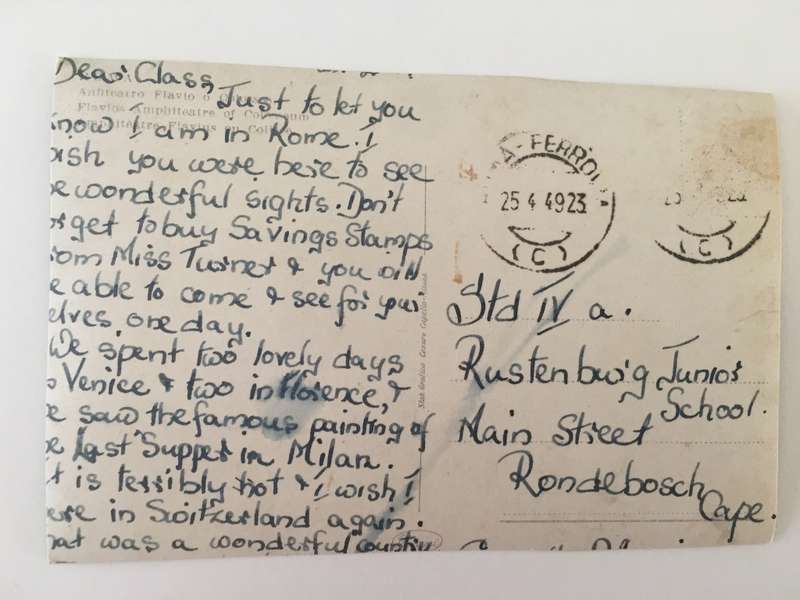 Dear Class,
Anfiteatro Flavio o
Flavios Amphiteatre of Colosseum
Just to let you
now I am in Rome. I
ish you were here to see
e wonderful sights. Don't
rget to buy Savings Stamps
rom Miss Turner & you will
e able to come & see for your
elves, one day.
We spent two lovely days
Venice & two in Florence, &
e saw the famous painting of
e Last Supper in Milan.
t is terribly hot & I wish I
ere in Switzerland again.
hat was a wonderful country
FERROV
25 4 49 23
(C)
(C)
Std IV a.
Rustenburg Junior
School.
Main Street
Rondebosch
Cape.